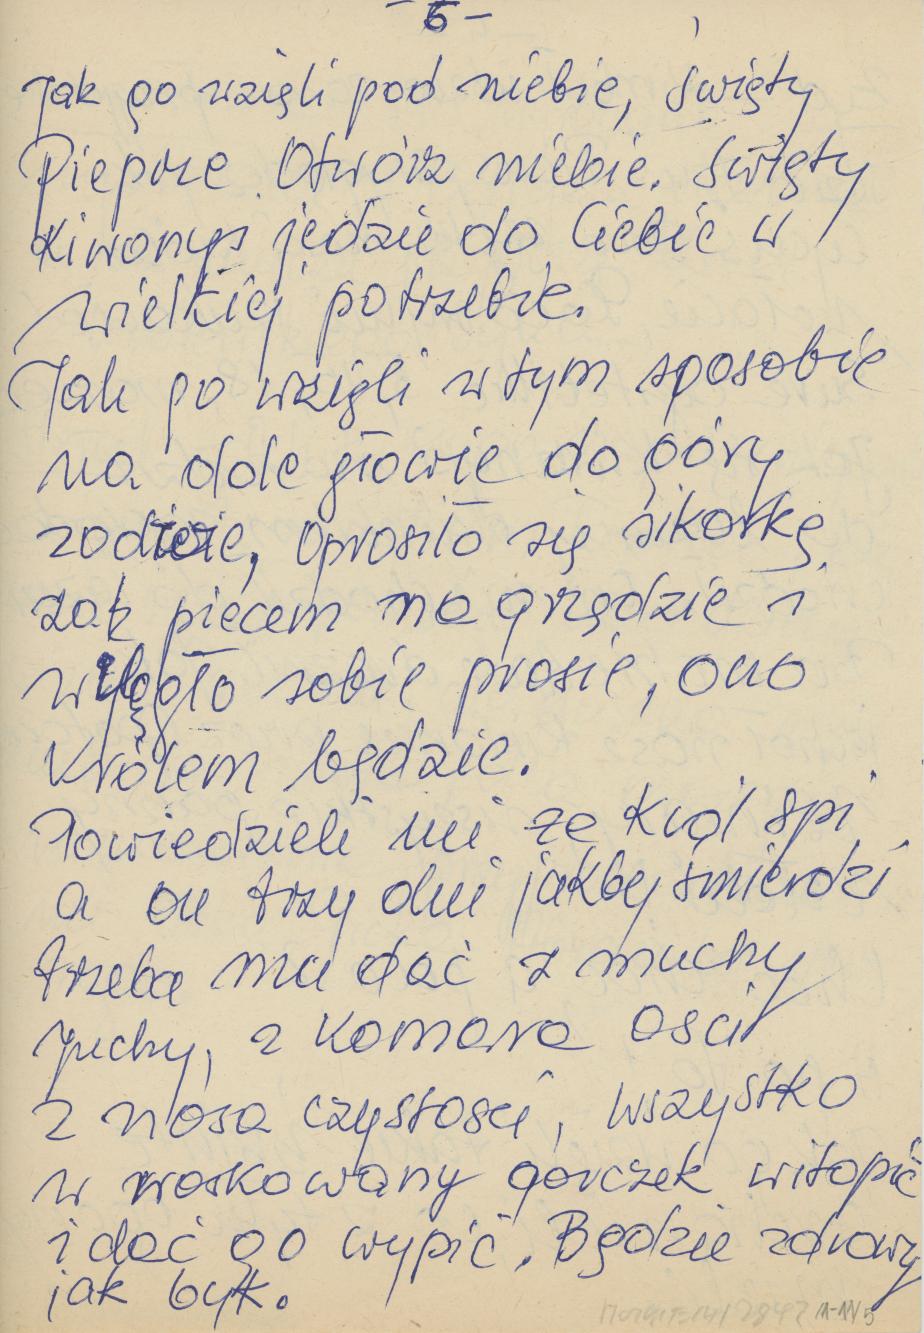 - 5 -
Jak go wzięli pod niebie, święty
Pieprze Otwórz niebie. Święty
Kiwonys jedzie do Ciebie w
wielkiej potrzebie.
Jak go wzięli w tym sposobie
na dole głowie do góry
zodicie, oprosiło się sikorkę
zak piecem na grzędzie i
wylęgło sobie prosie, ono
Królem będzie.
Powiedzieli mi że Król śpi
a on trzy dni jakby śmierdzi
trzeba mu dać z muchy
juchy, z komara ości
z nosa czystości, wszystko
w woskowany gorczek witopić
i dać go wypić. Będzie zdrowy
jak byk.